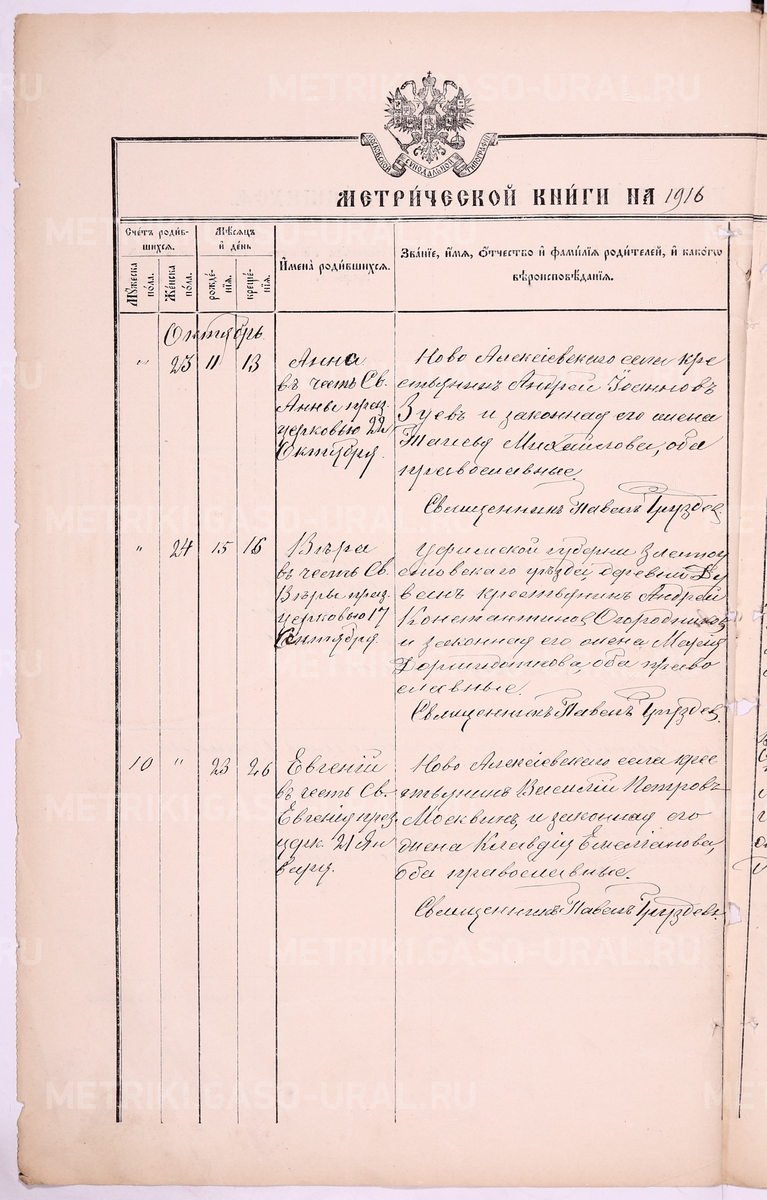 МОСКОВСКОЙ СИНОДАЛЬНОЙ ТИПОГРАФІИ
МЕТРИ́ЧЕСКОЙ КНИ́ГИ НА 1916
Сче́тъ роди́в-
шихся.
Му́жеска по́ла.
Же́нска по́ла.
Мѣ́сяцъ
и҆ де́нь
рожде́-
нія.
креще́-
нія.
И҆мена̀ роди́вшихся.
Зва́ніе, и҆́мя, ѻ҆́тчество и҆ фами́лія роди́телей, и҆ како́гѡ
вѣроисповѣ́данія.
Октябрь
" 23 11 13
Анна
въ честь Св.
Анны праз.
церковью 22
Октября.
Ново Алексіевскаго села кре
стьянинъ Андрей Іоанновъ
Зуевъ и законная его жена
Таисья Михайлова, оба
православные.
Священникъ Павелъ Груздев.
" 24 15 16
Вѣра
въ честь Св.
Вѣры праз.
церковью 17
Сентября
Уфимской губерни Златоу
стовскаго уѣзда, деревни
крестьянинъ Андрей
Константинов Огородников
и законная его жена Марія
оба право
славные.
Священникъ Павелъ Груздев.
10 " 23 26
Евгеній
въ честь Св.
Евгенія праз.
церк. 21 Ян
варя.
Ново Алексіевскаго села крес
тьянинъ Василій Петровъ
Москвинъ, и законная его
жена Клавдія Емеліанова,
оба православные.
Священникъ Павелъ Груздевъ.
METRIKI.GASO-URAL.RU